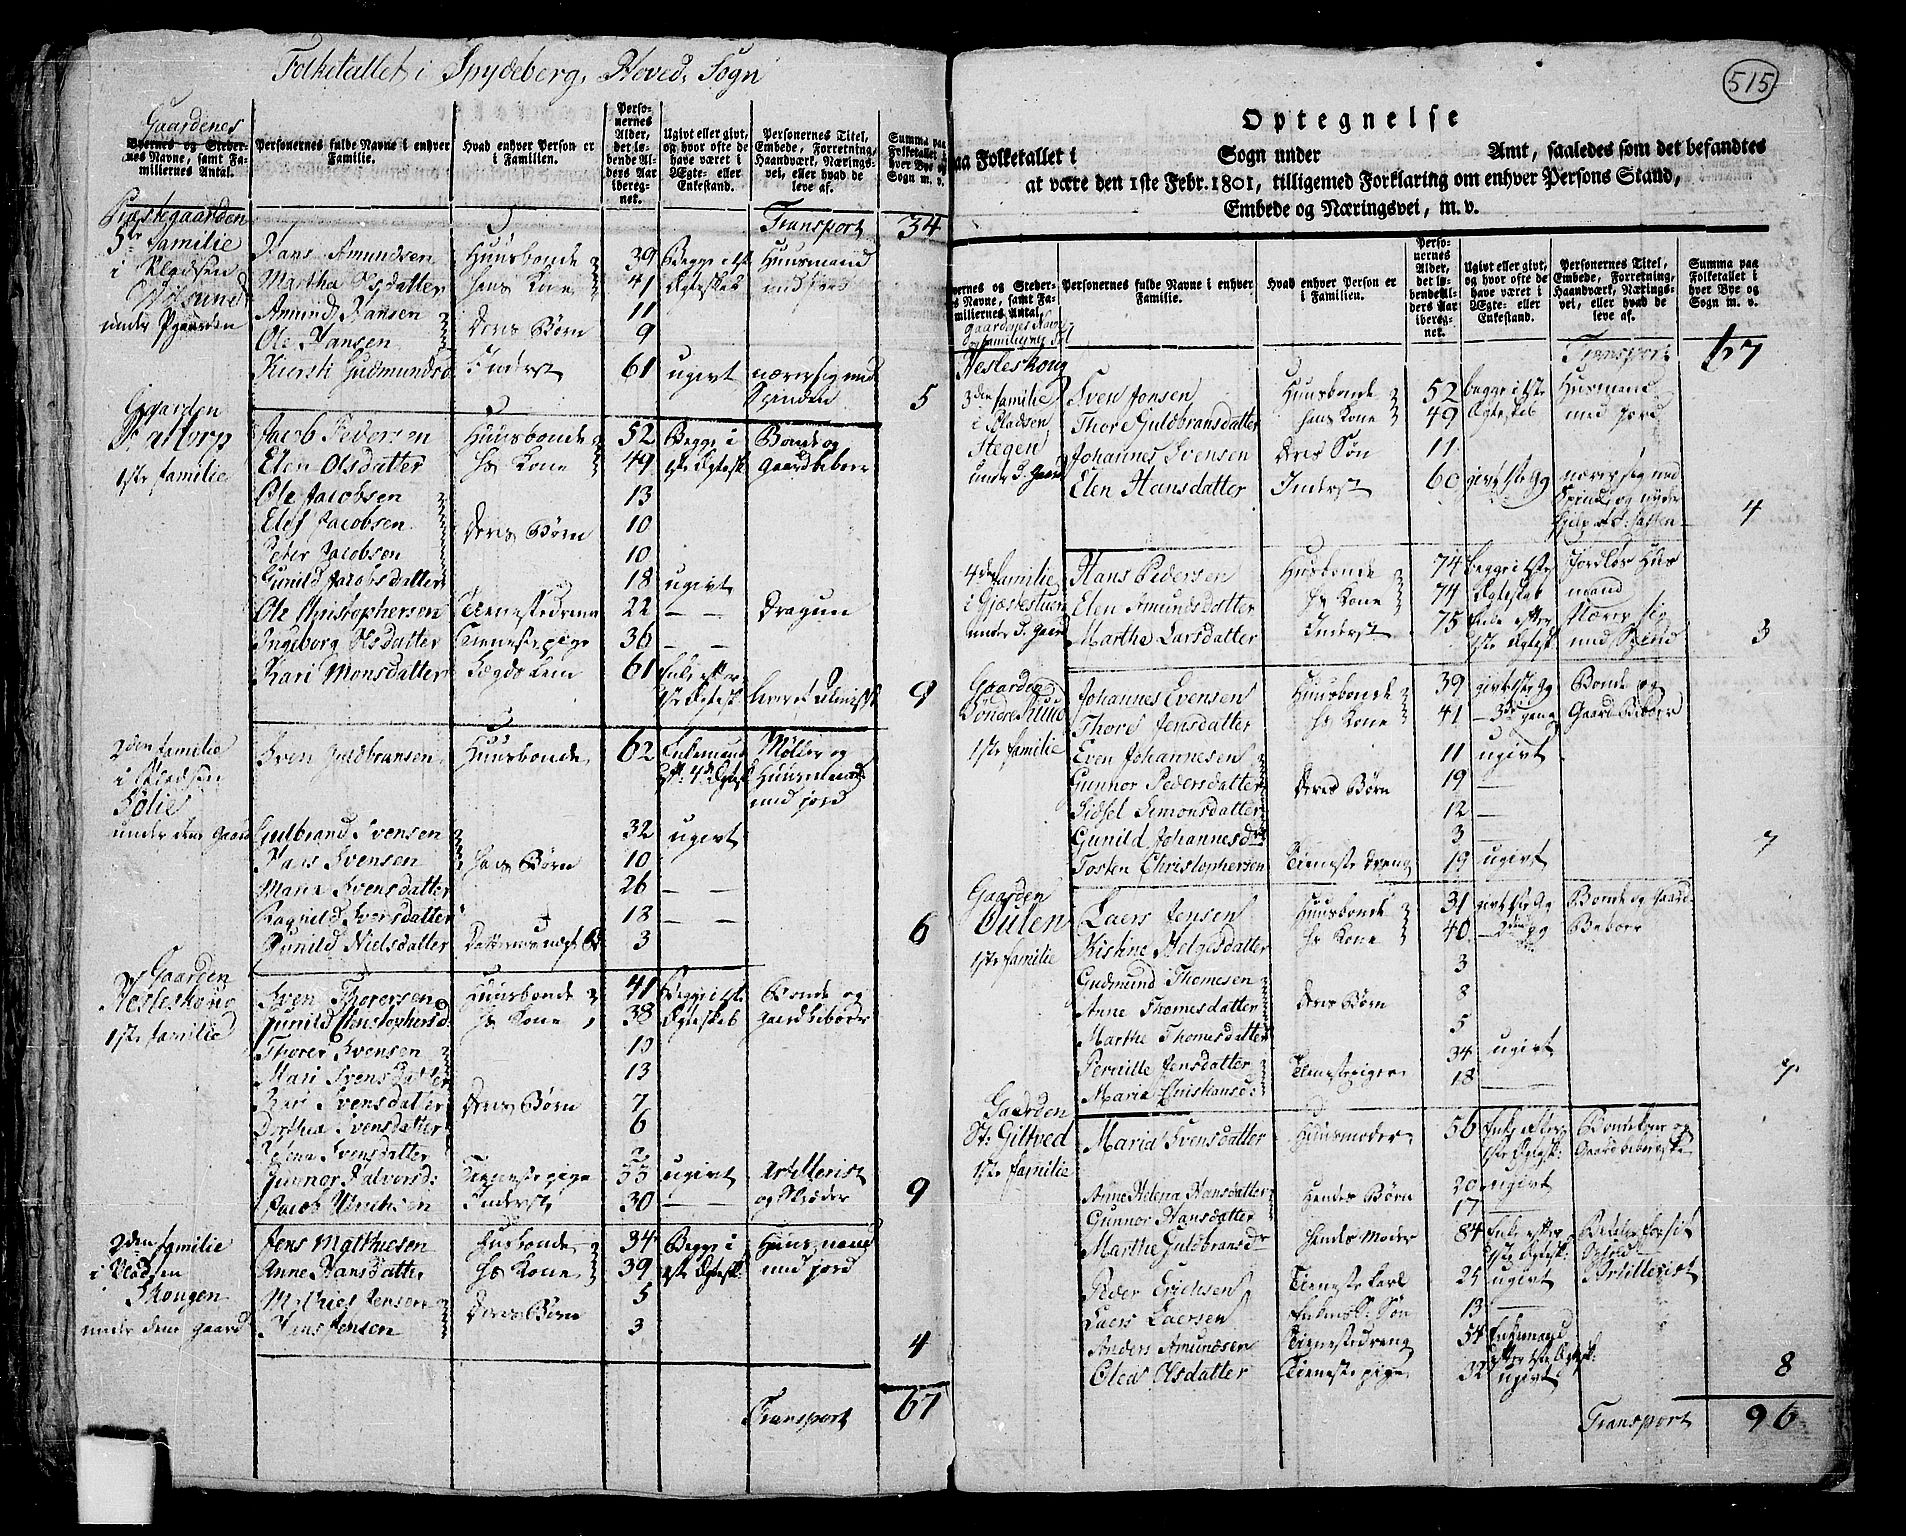 Folketallet i Spydeberg Hoved Sogn
Gaardenes
Byernes og Stedernes Navne, samt Familiernes Antal.
Personernes fulde Navne i enhver Familie.
Hvad enhver Person er i Familien.
Personernes Alder, det løbende Alders Aar iberegnet.
Ugivt eller givt, og hvor ofte de have været i Ægte- eller Enkestand.
Personernes Titel, Embede, Forretning, Haandværk, Næringsvei, eller hvad de leve af.
Summa paa Folketallet i hver Bye og Sogn m. v.
Præstegaarden Transport 34
5te familie Hans Amundsen Huusbonde 39 Begge i 1ste Huusmand
i Pladsen Martha Olsdatter hans Kone 41 Ægteskab med jord
under Pgaarden Amund Hansen deres Børn 11
Ole Hansen 9
Kiersti Gudmundsd Inderst 61 ugivt nærer sig med Spinden 5
Gaarden
1ste familie
Jacob Pedersen Huusbonde 52 Begge i Bonde og
Elen Olsdatter hs Kone 49 1ste Ægtesk Gaardbeboer
Ole Jacobsen 13
Elef Jacobsen deres Børn 10
Peter Jacobsen 10
Gunild Jacobsdatter 18 ugivt
Ole Christophersen Tienestedreng 22 — — Dragun
Ingeborg Olsdatter Tienestepige 36 — —
Kari Monsdatter Lægdslem 61 Enke efter 1ste Ægtesk 9
2den familie Sven Guldbransen Huusbonde 62 Enkemand Møller og
i Pladsen eft: 4de Ægtesk Huusmand
Solie med jord
under dene Gaard Gulbrand Svensen 32 ugivt
Hans Svensen hans Børn 10
Maria Svensdatter 26 — —
Ragnild Svensdatter 18 — —
Gunild Nielsdatter 3 6
Gaarden
Hesleskoug Sven Thorersen Huusbonde 41 Begge i 1ste Bonde og
1ste familie Gunild Christophersd: hs Kone 38 Ægteskab Gaardbeboer
Thorer Svensen 10
Mari Svensdatter 13
Kari Svensdatter deres Børn 7
Dorthea Svensdatter 6
Helena Svensdatter
Gunnor Halvorsd: Tienestepige 55 ugivt Artillerist
Jacob Henrichsen Inderst 30 — — og Skræder 9
2den familie Jens Mathiesen Husbonde 34 Begge i Huusmand
i Pladsen Anne Hansdatter hs Kone 39 1ste Ægtesk med jord
Skougen Mathies Jensen deres Børn 5
under dene gaard Hans Jensen 3
4
Transport 67
515
Optegnelse
paa Folketallet i Sogn under Amt, saaledes som det befandtes
at være den 1ste Febr. 1801, tilligemed Forklaring om enhver Persons Stand,
Embede og Næringsvei, m. v.
Byernes og Stedernes Navne, samt Familiernes Antal.
Personernes fulde Navne i enhver Familie.
Hvad enhver Person er i Familien.
Personernes Alder, det løbende Alders Aar iberegnet.
Ugivt eller givt, og hvor ofte de have været i Ægte- eller Enkestand.
Personernes Titel, Embede, Forretning, Haandværk, Næringsvei, eller hvad de leve af.
Summa paa Folketallet i hver Bye og Sogn m. v.
Gaardenes Navne
Hesleskoug Transport 67
3die familie Sven Jensen Huusbonde 52 begge i 1ste Husmand
i Pladsen Thore Guldbransdatter hans Kone 49 Ægteskab med jord
Stegen Johannes Svensen deres Søn 11
under d. Gaard Elen Hansdatter Inderst 60 givt 1ste Gg nærer sig med
4
4de familie Hans Pedersen Husbonde 74 begge i 1ste Jordløs Hus
i Gjæstestuen Elen Amundsdatter hs Kone 74 Ægteskab mand
under d. Gaard Marthe Larsdatter Inderst 75 Enke efter Nærer sig
1ste Ægtesk med Spind 3
Gaarden Johannes Evensen Huusbonde 39 givt 1ste Gg Bonde og
Thore Jensdatter hs Kone 41 — 3die gang Gaard Beboer
1ste familie Even Johannesen 11 ugivt
Gunnor Pedersdatter deres Børn 19 —
Sidsel Simonsdatter 12 —
Gunild Johannesdr 3 — 7
Tosten Christophersen Tienestedreng 19 ugivt
Gaarden
Oulen Laers Jensen Huusbonde 31 givt 1ste Gg Bonde og Gaard
Kistine Helgesdatter hs Kone 40 — 2den gg Beboer
1ste familie
Gudmund Thomesen 3
Anne Thomesdatter deres Børn 8
Marthe Thomesdatter 5
Pernille Jensdatter Tienestepiger 34 ugivt
Maria Christiansd: 18 — 7
Gaarden
St: Gittved Maria Svensdatter Huusmoder 56 Enke efter
1ste familie 1ste Ægtesk:
Anne Helena Hansdatter hendes Børn 20 ugivt
Gunnor Hansdatter 17 —
Marthe Guldbransdr hendes Moder 84 Enke efter
1ste Ægtesk:
Peder Erichsen Tienestekarl 25 ugivt Artillerist
Laers Laersen 13 —
Anders Amundsen Tienestedreng 54 Enkemand
efter 1ste Ægtesk:
Elea Olsdatter Tienestepige 32 ugivt 8
Transport 96